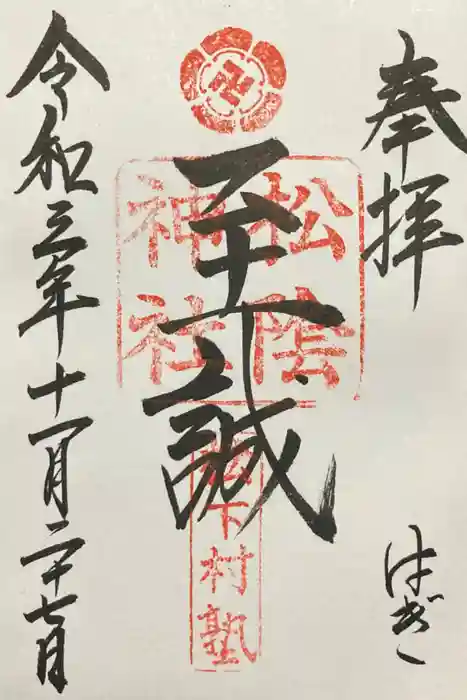 奉拝
はぎ
至誠
松陰
神社
松下村塾
令和三年十一月二十七日